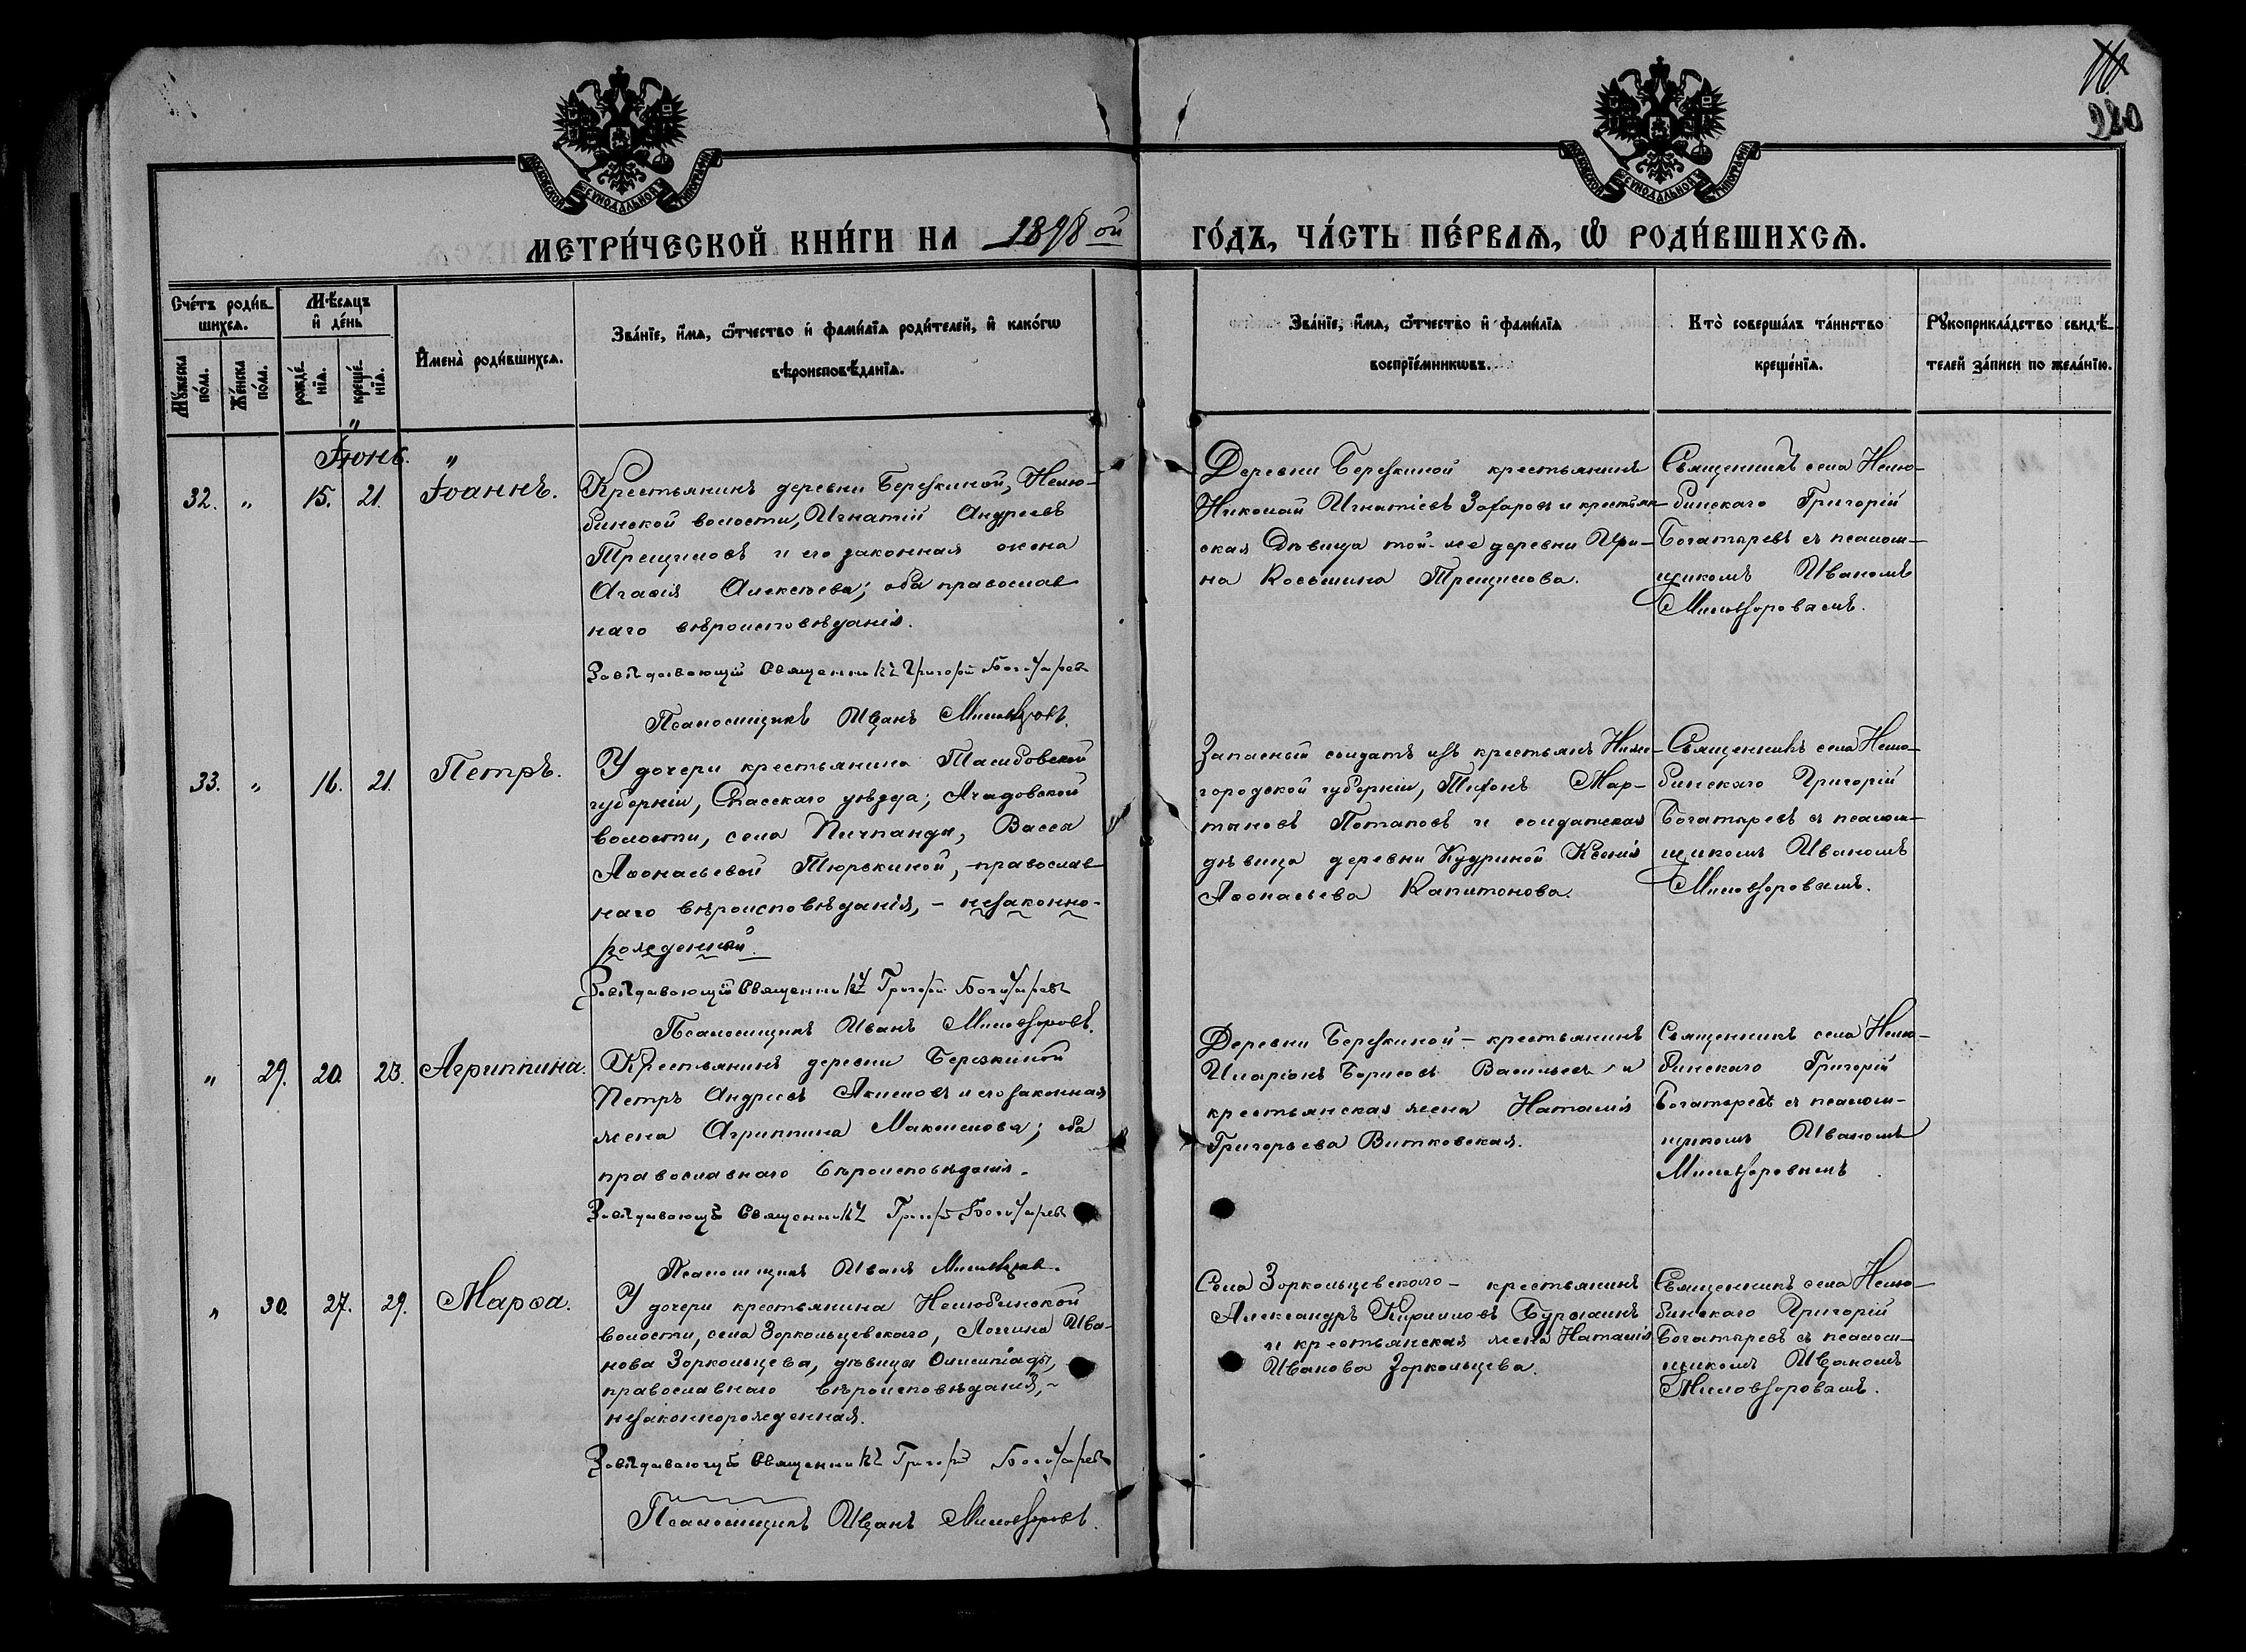 220
МОСКОВСКОЙ СѴНОДАЛЬНОЙ ТИПОГРАФІИ
МОСКОВСКОЙ СѴНОДАЛЬНОЙ ТИПОГРАФІИ
МЕТРИ́ЧЕСКОЙ КНИ́ГИ НА 1898 ой ГО́ДЪ, ЧА́СТЬ ПЕ́РВАѦ, Ѡ РОДИ́ВШИХСѦ.
Сче́тъ роди́в-
шихсѧ.
Мꙋ́жеска
по́ла.
Же́нска
по́ла.
Мѣ́сѧцъ
и҆ де́нь
рожде́-
нїѧ.
креще́-
нїѧ.
И҆мена̀ роди́вшихсѧ.
Зва́нїе, и҆́мѧ, ѻ҆́тчество и҆ фами́лїѧ роди́телей, и҆ како́гѡ
вѣроисповѣ́данїѧ.
Зва́нїе, и҆́мѧ, ѻ҆́тчество и҆ фами́лїѧ
воспрїе́мникѡвъ.
Кто̀ соверша́лъ та́инство
креще́нїѧ.
Рꙋкоприкла́дство свидѣ́-
телей за́писи по жела́нїю.
Іюнь.
32. „ 15. 21. Іоаннъ.
Крестьянинъ деревни Березкиной, Нелю-
бинской волости, Игнатій Андреевъ
Трещиловъ и его законная жена
Агафія Алексѣева; оба православ
наго вѣроисповѣданія.
Завѣдывающій Священникъ Григорій Богатыревъ
Псаломщикъ Иванъ Миловзоровъ.
Деревни Березкиной крестьянинъ
Николай Игнатіевъ Захаровъ и крестьян-
ская дѣвица той-же деревни Ири-
на Косьмина Трещилова.
Священникъ села Нелю-
бинскаго Григорій
Богатыревъ съ псалом-
щикомъ Иваномъ
Миловзоровымъ.
33. „ 16. 21. Петръ.
У дочери крестьянина Тамбовской
губерніи, Спасскаго уѣзда, Ачадовской
волости, села Пичпанда, Васса
Аѳонасьевой Тюрькиной, православ-
наго вѣроисповѣданія, – незаконно-
рожденный.
Завѣдывающій Священникъ Григорій Богатыревъ
Псаломщикъ Иванъ Миловзоровъ.
Запасный солдатъ изъ крестьянъ Ниже-
городской губерніи, Тихонъ Мар-
тыновъ Потаповъ и солдатская
дѣвица деревни Кудриной Ксенія
Аѳонасьева Капитонова.
Священникъ села Нелю-
бинскаго Григорій
Богатыревъ съ псалом-
щикомъ Иваномъ
Миловзоровымъ.
„ 29. 20. 23. Агриппина.
Крестьянинъ деревни Березкиной
Петръ Андреевъ Акимовъ и его законная
жена Агриппина Максимова; оба
православнаго вѣроисповѣданія.
Завѣдывающій Священникъ Григорій Богатыревъ
Псаломщикъ Иванъ Миловзоровъ.
Деревни Березкиной – крестьянинъ
Иларіонъ Борисовъ Васильевъ и
крестьянская жена Наталія
Григорьева Витковская.
Священникъ села Нелю-
бинскаго Григорій
Богатыревъ съ псалом-
щикомъ Иваномъ
Миловзоровымъ.
„ 30. 27. 29. Марѳа.
У дочери крестьянина Нелюбинской
волости, села Зоркольцевскаго, Логгина Ива-
нова Зоркольцева, дѣвицы Олимпіады,
православнаго вѣроисповѣданія, –
незаконнорожденная.
Завѣдывающій Священникъ Григорій Богатыревъ
Псаломщикъ Иванъ Миловзоровъ.
Села Зоркольцевскаго – крестьянинъ
Александръ Кирилловъ Бурыхинъ
и крестьянская жена Наталія
Иванова Зоркольцева.
Священникъ села Нелю-
бинскаго Григорій
Богатыревъ съ псалом-
щикомъ Иваномъ
Миловзоровымъ.